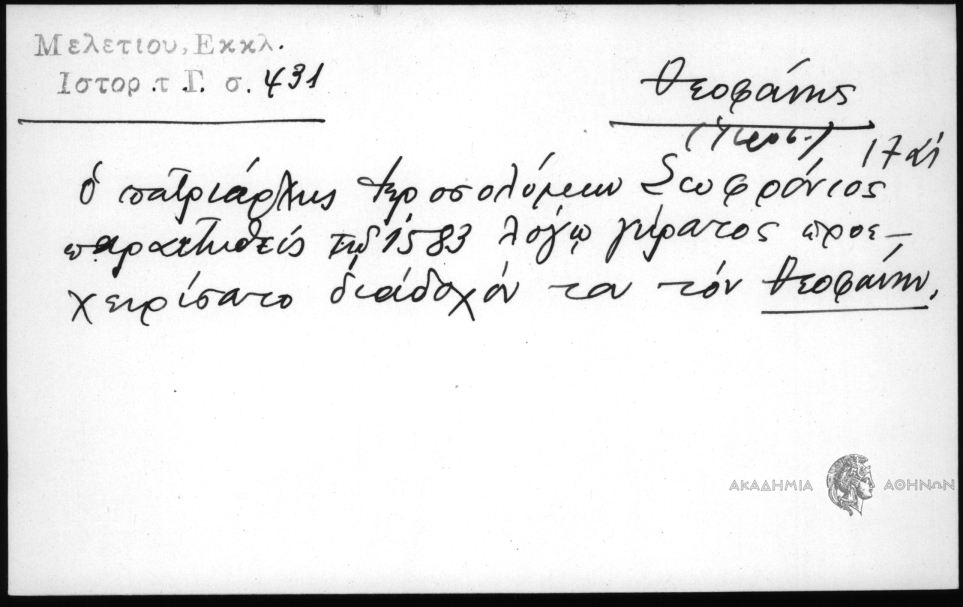 Μελετίου, Εκκλ.
Ιστορ. τ. Γ. σ. 431
Θεοφάνης
(Ιεροσ.)
17 αἰ
ὁ πατριάρχης Ἱεροσολύμων Σωφρόνιος
παραιτηθείς τῷ 1583 λόγῳ γήρατος προε-
χειρίσατο διάδοχόν του τόν Θεοφάνην.
ΑΚΑΔΗΜΙΑ ΑΘΗΝΩΝ